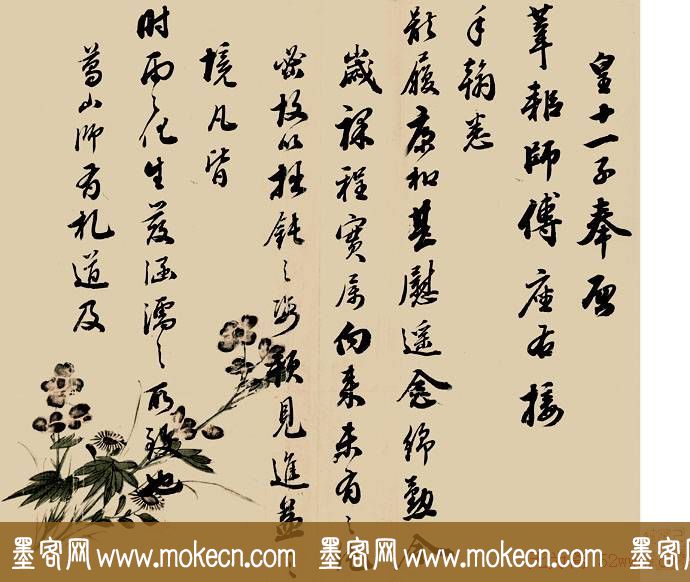 皇十一子奉啓
葦䎽師傅座右接
手翰悉
履康和甚慰遥念絲
歲課程實属向來未有之
故以拙鈍之姿頗見進益
境凡皆
时雨之化生茲涵濡之所致也
葛山师有札道及
墨客网www.mokecn.com 墨客网www.mokecn.com 墨客网